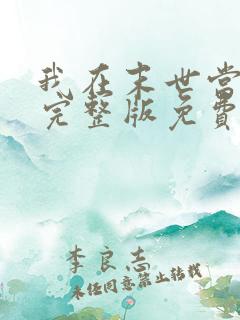 我在末世当
完整版免费
李良志
未经同意禁止转载